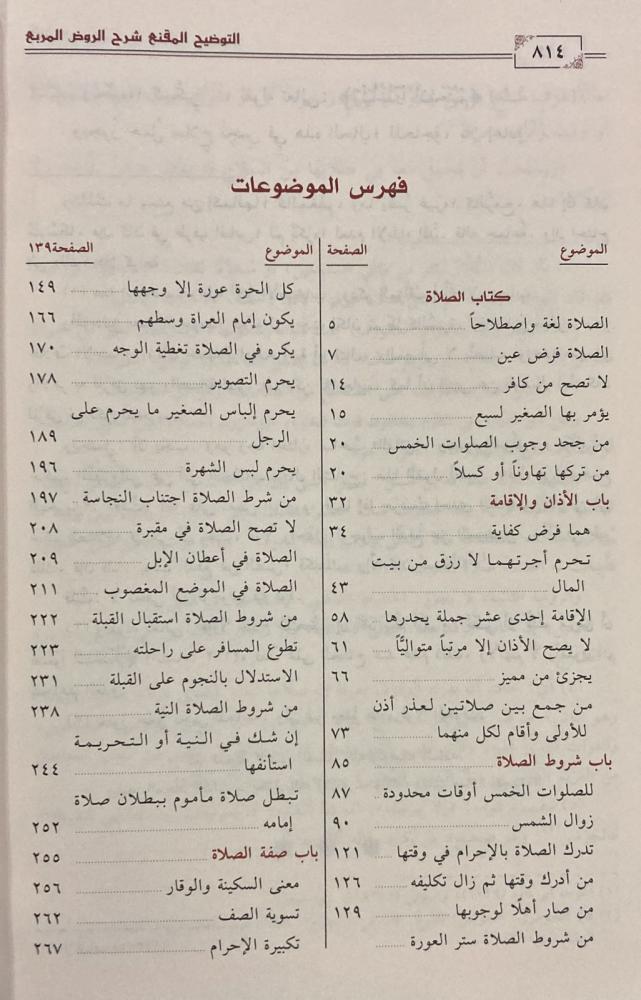 ٨١٤
التوضيح المقنع شرح الروض المربع
فهرس الموضوعات
الموضوع الصفحة
كتاب الصلاة
الصلاة لغة واصطلاحاً ٥
الصلاة فرض عين ٧
لا تصح من كافر ١٤
يؤمر بها الصغير لسبع ١٥
من جحد وجوب الصلوات الخمس ٢٠
من تركها تهاوناً أو كسلاً ٢٠
باب الأذان والإقامة ٣٢
هما فرض كفاية ٣٤
تحرم أجرتهما لا رزق من بيت
المال ٤٣
الإقامة إحدى عشر جملة يحدرها ٥٨
لا يصح الأذان إلا مرتباً متواليًّا ٦١
يجزئ من مميز ٦٦
من جمع بين صلاتين لعذر أذن
للأولى وأقام لكل منهما ٧٣
باب شروط الصلاة ٨٥
للصلوات الخمس أوقات محدودة ٨٧
زوال الشمس ٩٠
تدرك الصلاة بالإحرام في وقتها ١٢١
من أدرك وقتها ثم زال تكليفه ١٢٦
من صار أهلًا لوجوبها ١٢٩
من شروط الصلاة ستر العورة
الموضوع الصفحة١٣٩
كل الحرة عورة إلا وجهها ١٤٩
يكون إمام العراة وسطهم ١٦٦
يكره في الصلاة تغطية الوجه ١٧٠
يحرم التصوير ١٧٨
يحرم إلباس الصغير ما يحرم على
الرجل ١٨٩
يحرم لبس الشهرة ١٩٦
من شرط الصلاة اجتناب النجاسة ١٩٧
لا تصح الصلاة في مقبرة ٢٠٨
الصلاة في أعطان الإبل ٢٠٩
الصلاة في الموضع المغصوب ٢١١
من شروط الصلاة استقبال القبلة ٢٢٢
تطوع المسافر على راحلته ٢٢٣
الاستدلال بالنجوم على القبلة ٢٣١
من شروط الصلاة النية ٢٣٨
إن شك في النية أو التحريمة
استأنفها ٢٤٤
تبطل صلاة مأموم ببطلان صلاة
إمامه ٢٥٢
باب صفة الصلاة ٢٥٥
معنى السكينة والوقار ٢٥٦
تسوية الصف ٢٦٢
تكبيرة الإحرام ٢٦٧